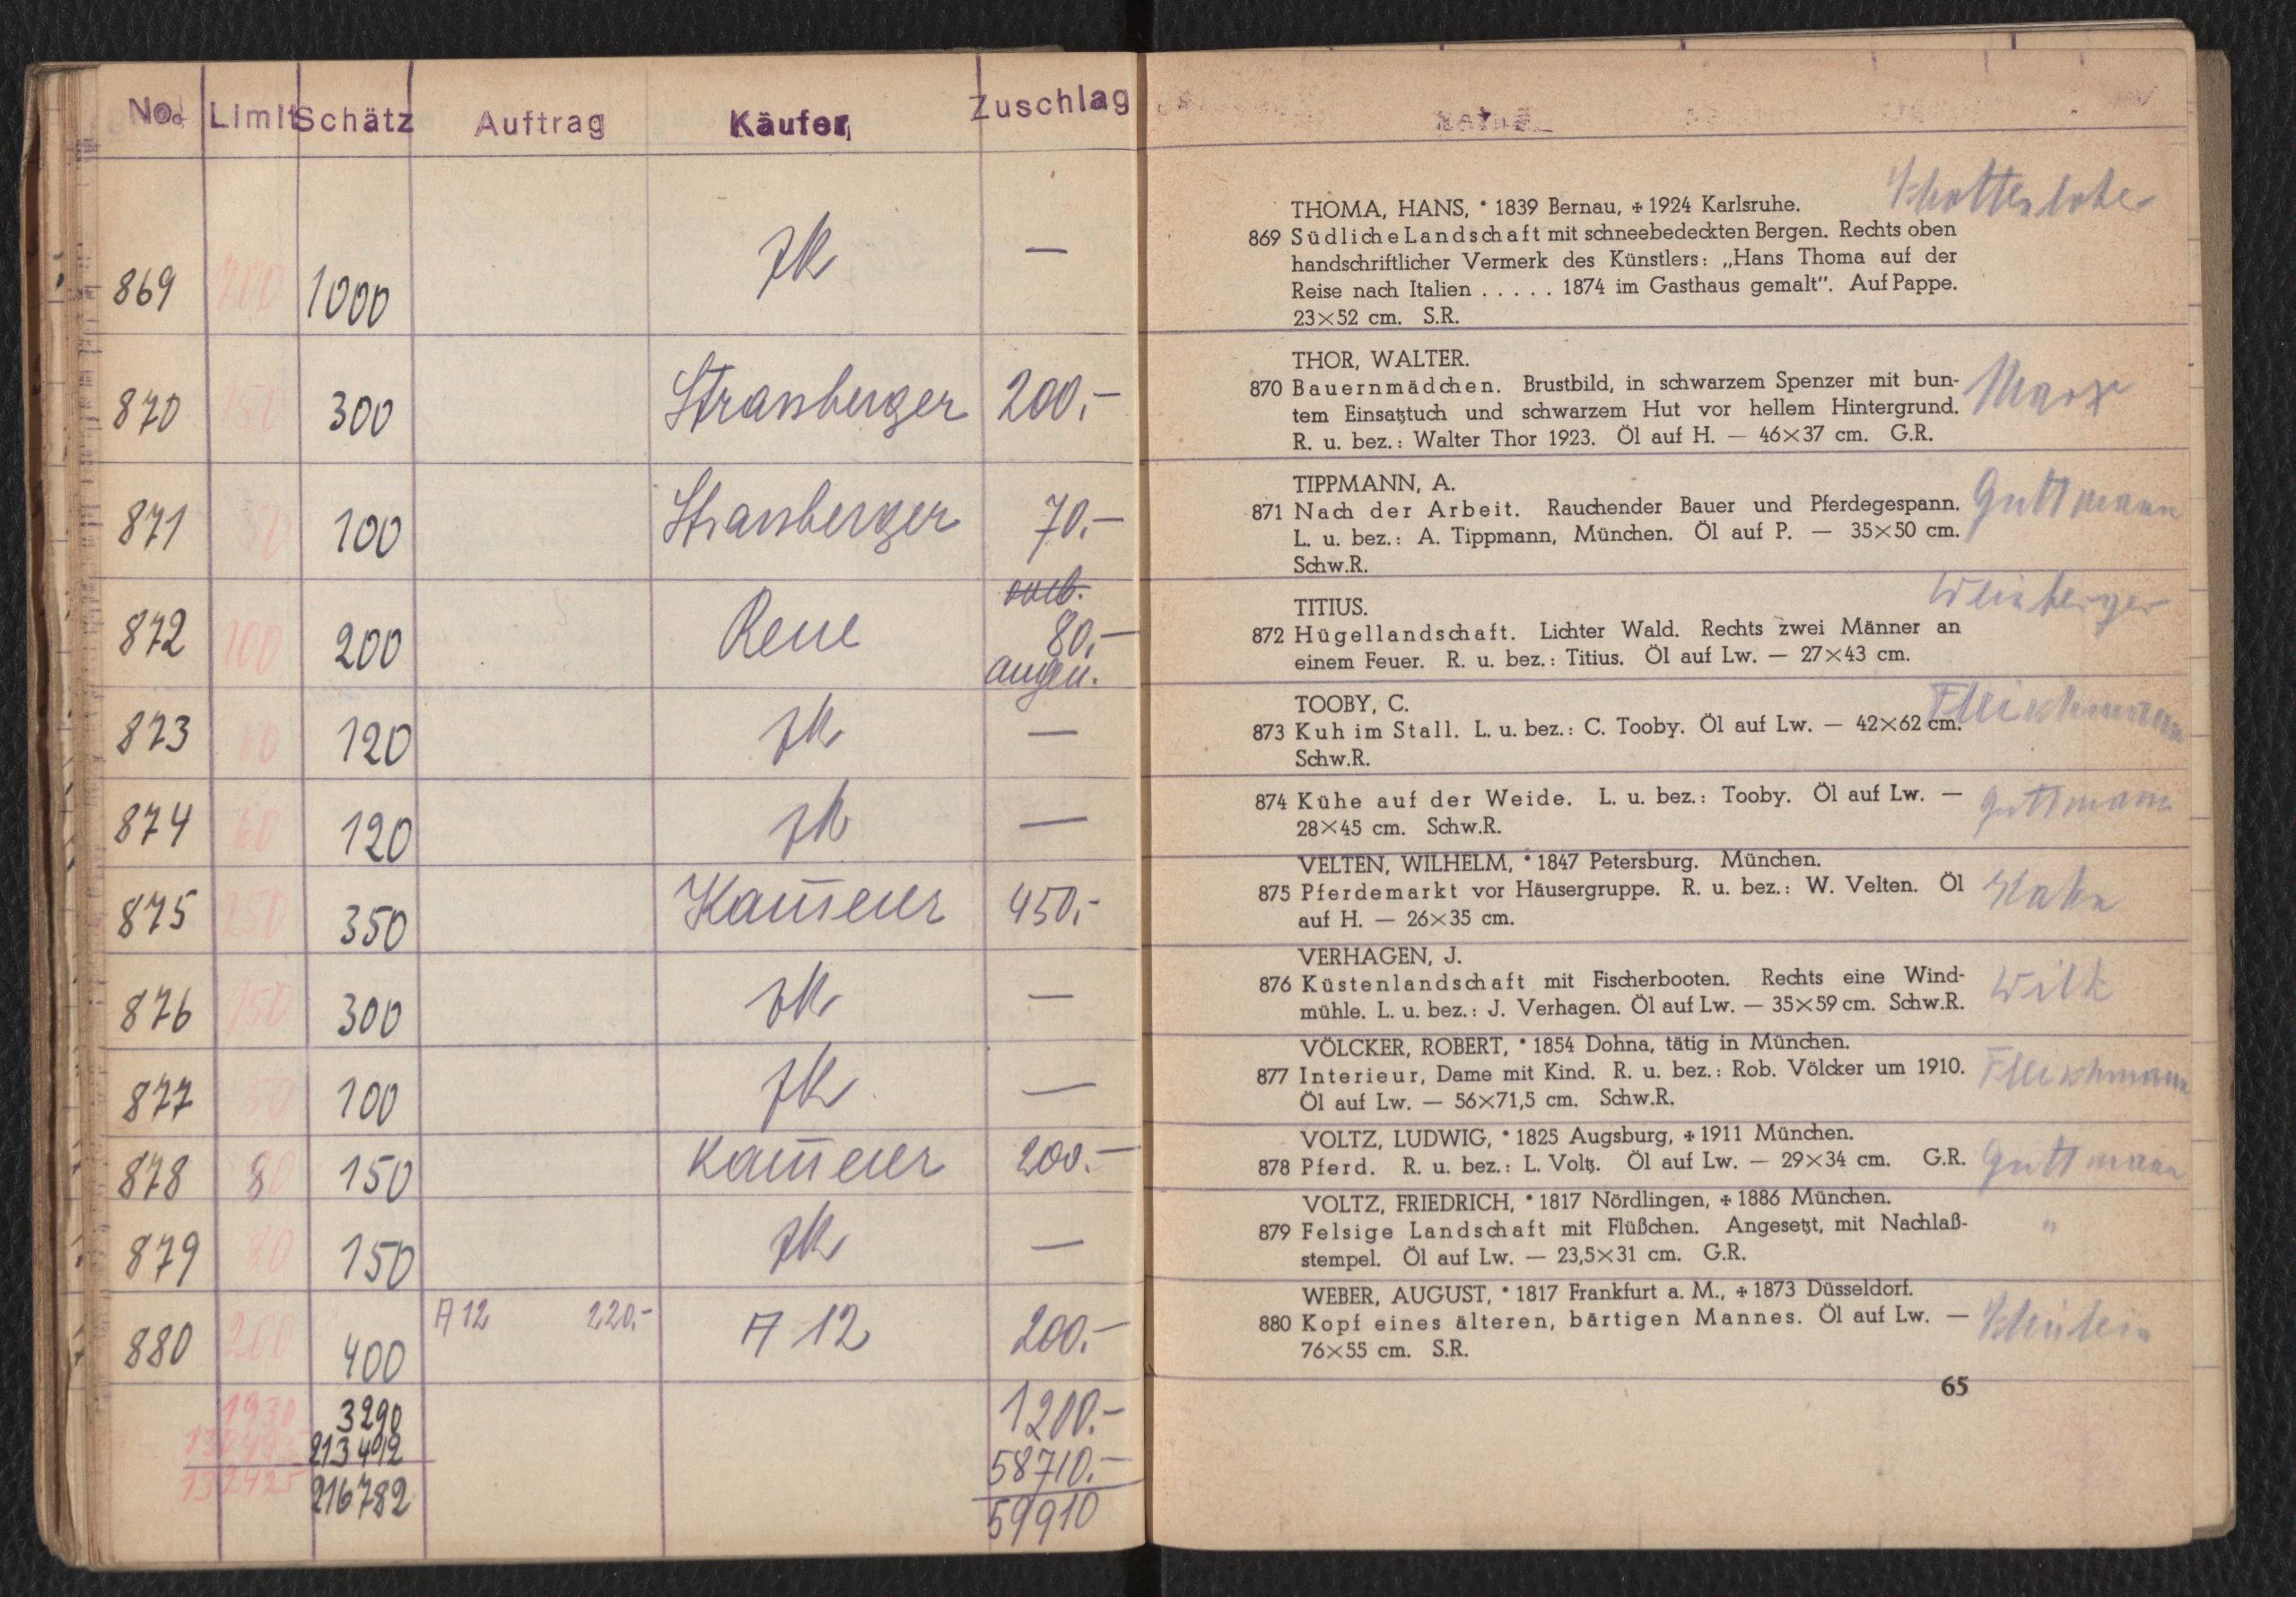 No. Limit Schätz Auftrag Käufer Zuschlag
869 700 1000 zk —
870 150 300 Strassberger 200.-
871 50 100 Strassberger 70.-
872 100 200 Rene 80.-
873 60 120 zk —
874 60 120 zk —
875 250 350 Kam̄erer 450.-
876 150 300 zk —
877 50 100 zk —
878 80 150 Kam̄erer 200.-
879 80 150 zk —
880 200 400 A 12 220.- A 12 200.-
1930 3290 1200.-
213492 58710.-
132425 216782 59910
THOMA, HANS, * 1839 Bernau, ✠ 1924 Karlsruhe.
869 Südliche Landschaft mit schneebedeckten Bergen. Rechts oben
handschriftlicher Vermerk des Künstlers: „Hans Thoma auf der
Reise nach Italien . . . . . 1874 im Gasthaus gemalt“. Auf Pappe.
23×52 cm. S.R.
THOR, WALTER.
870 Bauernmädchen. Brustbild, in schwarzem Spenzer mit bun-
tem Einsatztuch und schwarzem Hut vor hellem Hintergrund. Marx
R. u. bez.: Walter Thor 1923. Öl auf H. — 46×37 cm. G.R.
TIPPMANN, A.
871 Nach der Arbeit. Rauchender Bauer und Pferdegespann. Guttmann
L. u. bez.: A. Tippmann, München. Öl auf P. — 35×50 cm.
Schw.R.
TITIUS. Weinberger
872 Hügellandschaft. Lichter Wald. Rechts zwei Männer an
einem Feuer. R. u. bez.: Titius. Öl auf Lw. — 27×43 cm.
TOOBY, C. Fleischmann
873 Kuh im Stall. L. u. bez.: C. Tooby. Öl auf Lw. — 42×62 cm.
Schw.R.
874 Kühe auf der Weide. L. u. bez.: Tooby. Öl auf Lw. — Guttmann
28×45 cm. Schw.R.
VELTEN, WILHELM, * 1847 Petersburg. München.
875 Pferdemarkt vor Häusergruppe. R. u. bez.: W. Velten. Öl Hahn
auf H. — 26×35 cm.
VERHAGEN, J.
876 Küstenlandschaft mit Fischerbooten. Rechts eine Wind- Wilk
mühle. L. u. bez.: J. Verhagen. Öl auf Lw. — 35×59 cm. Schw.R.
VÖLCKER, ROBERT, * 1854 Dohna, tätig in München.
877 Interieur, Dame mit Kind. R. u. bez.: Rob. Völcker um 1910. Fleischmann
Öl auf Lw. — 56×71,5 cm. Schw.R.
VOLTZ, LUDWIG, * 1825 Augsburg, ✠ 1911 München.
878 Pferd. R. u. bez.: L. Voltz. Öl auf Lw. — 29×34 cm. G.R. Guttmann
VOLTZ, FRIEDRICH, * 1817 Nördlingen, ✠ 1886 München.
879 Felsige Landschaft mit Flüßchen. Angesetzt, mit Nachlaß- "
stempel. Öl auf Lw. — 23,5×31 cm. G.R.
WEBER, AUGUST, * 1817 Frankfurt a. M., ✠ 1873 Düsseldorf.
880 Kopf eines älteren, bärtigen Mannes. Öl auf Lw. —
76×55 cm. S.R.
65